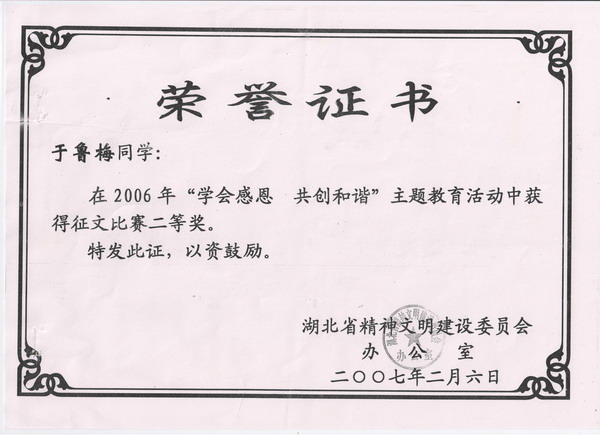 荣誉证书
于鲁梅同学：
在2006年“学会感恩 共创和谐”主题教育活动中获
得征文比赛二等奖。
特发此证，以资鼓励。
湖北省精神文明建设委员会
办公室
二〇〇七年二月六日
办公室